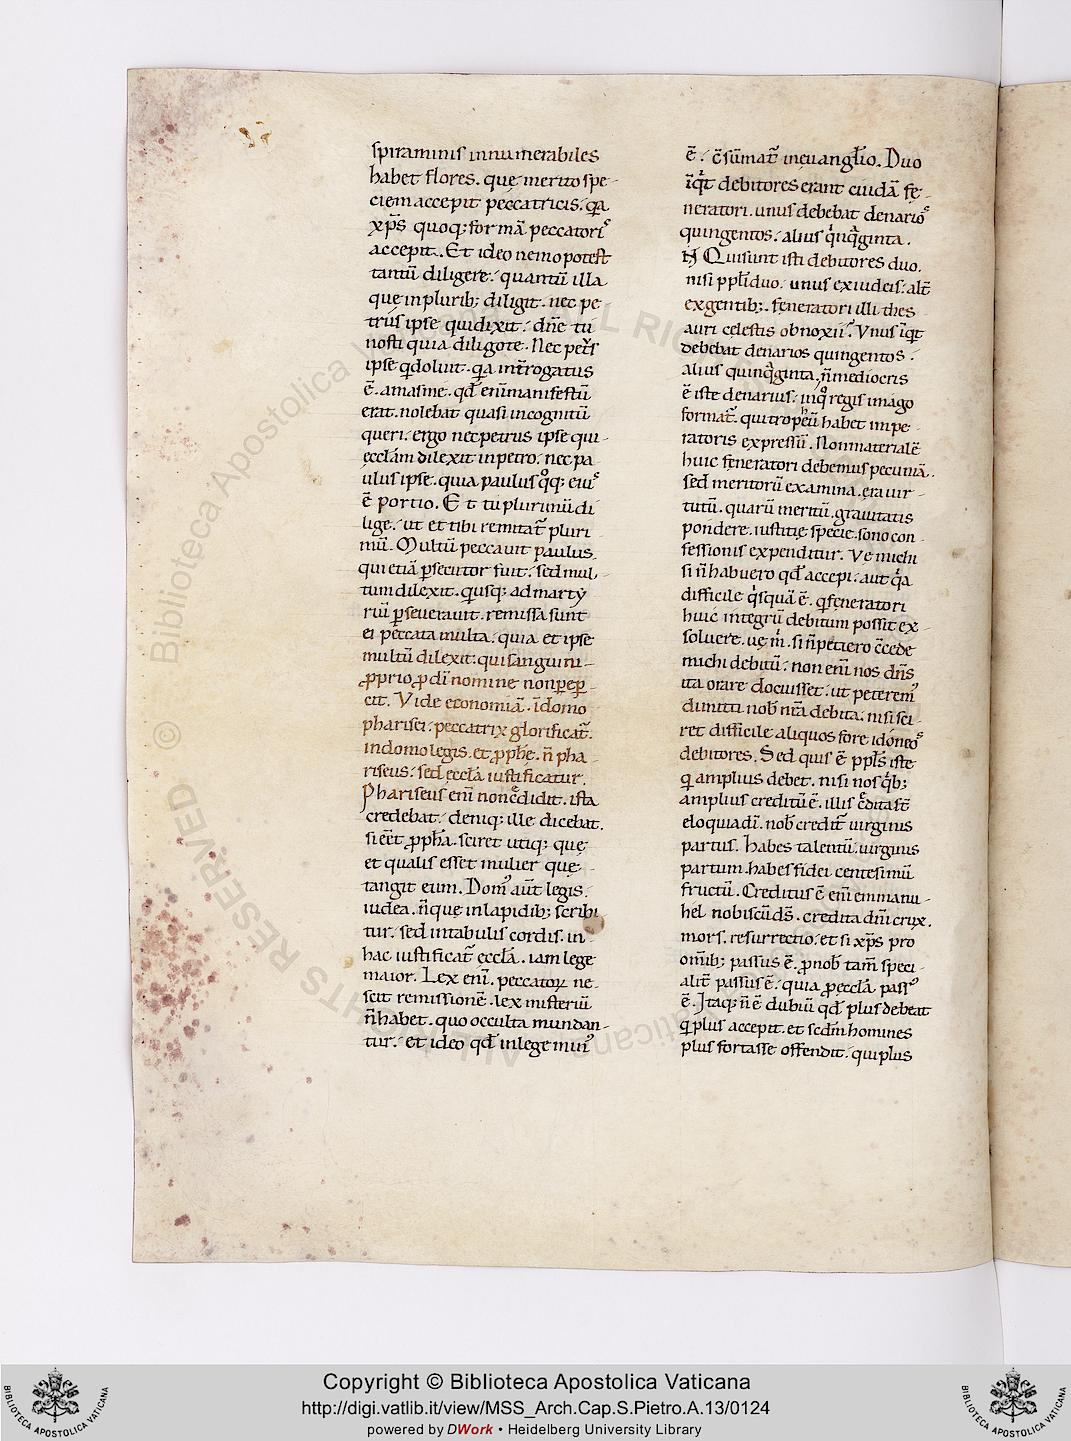 spiraminis innumerabiles
habet flores. quę merito spe-
ciem accepit peccatricis. q̄a
xp̄s quoq; formā peccatori᷒
accepit. Et ideo nemo potest
tantū diligere. quantū illa
quę in plurib; diligit. nec pe
trus ipse qui dixit. dn̄e tu
nosti quia diligo te. Nec petr̄s
ipse q̄ doluit. q̄a int̄rogatus
ē. amas me. qd̄ enī manifestū
erat. nolebat quasi incognitū
queri. ergo nec petrus ipse qui-
ęcclām dilexit in petro. nec pa
ulus ipse. quia paulus q̊q; eiu᷒
ē portio. Et tu plurimū di
lige. ut et tibi remitat᷒ pluri
mū. Multū peccauit paulus.
qui etiā p̄secutor fuit. sed mul
tum dilexit. q̄ usq; ad marty
riū p̄seuerauit. remissa sunt
ei peccata multa. quia et ipse
multū dilexit. qui sanguini-
ꝓprio ꝓ dī nomine non peꝑ-
cit. Vide economiā. ī domo
pharisei. peccatrix glorificat᷒.
in domo legis. et ꝓph̄e. n̄ pha
riseus. sed ęcclā iustificatur.
Phariseus enī non c̄didit. ista
credebat. deniq; ille dicebat.
si eēt ꝓph̄a. sciret utiq; quę
et qualis esset mulier quę
tangit eum. Dom᷒ aūt legis.
iudea. n̄ quę in lapidib; scribi
tur. sed in tabulis cordis. in-
hac iustificat᷒ ęcclā. iam lege
maior. Lex enī. peccatoꝝ ne-
scit remissionē. lex misteriū
n̄ habet. quo occulta mundan-
tur. et ideo qd̄ in lege min᷒
ē. c̄sūmat᷒ in euangl̄io. Duo
īq̇t debitores erant cuidā fę-
neratori. unus debebat denario᷒
quingentos. alius q̇nq̄ginta.
Qui sunt isti debitores duo.
nisi ppl̄i duo. unus ex iudeis. alt̄
ex gentib;. feneratori illi thes
auri celestis obnoxii? Vnus īqt
debebat denarios quingentos.
alius quinq̄ginta. n̄ mediocris
ē iste denarius. in q̊ regis imago
format᷒. qui tropheū habet impe-
ratoris expressū. Non materialē
huic feneratori debemus pecuniā.
sed meritorū examina. era uir-
tutū. quarū meritū. grauitatis
pondere. iustitię specie. sono con-
fessionis expenditur. Ve michi
si n̄ habuero qd̄ accepi. aut q̄a
difficile q̇squā ē. q̄ feneratori
huic integrū debitum possit ex-
soluere. uę m̄. si n̄ petiero c̄cede
michi debitū. non enī nos dn̄s
ita orare docuisset. ut peterem᷒
dimitti nob̄ nr̄a debita. nisi sci-
ret difficile aliquos fore idoneo᷒
debitores. Sed quis ē ppl̄s iste
q̄ amplius debet. nisi nos q̇b;
amplius creditū ē. illis c̄dita st̄
eloquia dī. nob̄ credit᷒ uirginis
partus. Habes talentū. uirginis
partum. habes fidei centesimū
fructū. Creditus ē enī emmanu-
hel nobiscū ds̄. credita dn̄i crux.
mors. resurrectio. et si xp̄s pro
omīb; passus ē. ꝓ nob̄ tam̄ speci-
alit᷒ passus ē. quia ꝓ ęcclā pass᷒
ē. Itaq; n̄ ē dubiū qd̄ plus debeat
q̄ plus accepit. et scdm̄ homines
plus fortasse offendit. qui plus
© Biblioteca Apostolica Vaticana - ALL RIGHTS RESERVED
Copyright © Biblioteca Apostolica Vaticana
http://digi.vatlib.it/view/MSS_Arch.Cap.S.Pietro.A.13/0124
powered by DWork • Heidelberg University Library
BIBLIOTECA APOSTOLICA VATICANA
BIBLIOTECA APOSTOLICA VATICANA